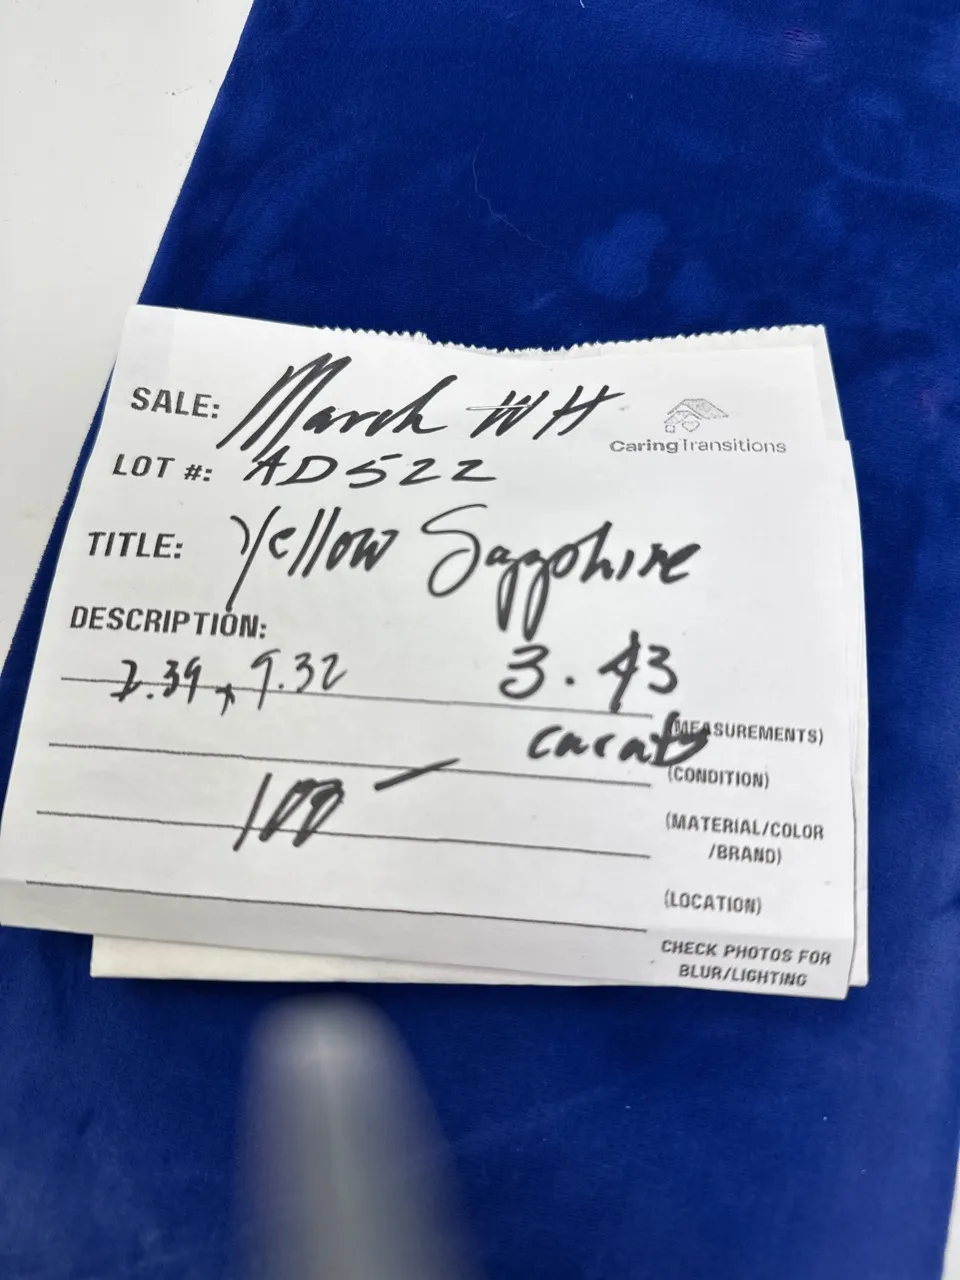 SALE: March WH
CaringTransitions
LOT #: AD522
TITLE: Yellow Sapphire
DESCRIPTION:
7.39 x 9.32 3.43
carats
(MEASUREMENTS)
(CONDITION)
100 —
(MATERIAL/COLOR
/BRAND)
(LOCATION)
CHECK PHOTOS FOR
BLUR/LIGHTING